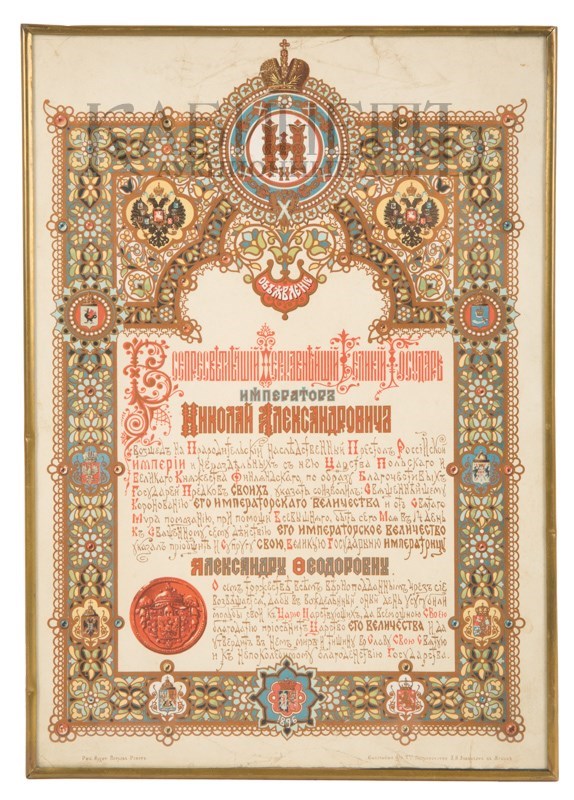 КАБИНЕТЪ
Н
ОБЪЯВЛЕНІЕ
Всепресвѣтлѣйшій Державнѣйшій Великій Государь
ИМПЕРАТОРЪ
Николай Александровичъ
взошедъ на Прародительскій наслѣдственный Престолъ Россійской
Имперіи и нераздѣльныхъ съ нею Царства Польскаго и
Великаго Княжества Финляндскаго, по образу Благочестивыхъ
Государей Предковъ СВОИХЪ указать соизволилъ: Священнѣйшему
Коронованію ЕГО ИМПЕРАТОРСКАГО ВЕЛИЧЕСТВА и отъ Святаго
Мѵра помазанію, при помощи Всевышняго, быть сего Мая въ 14 день
къ священному сему дѣйствію ЕГО ИМПЕРАТОРСКОЕ ВЕЛИЧЕСТВО
указалъ пріобщить и Супругу СВОЮ, Великую Государыню ИМПЕРАТРИЦУ
Александру Ѳеодоровну
О семъ торжествѣ всѣмъ вѣрноподданнымъ чрезъ сіе
возвѣщается, дабы въ вожделѣнный оный день усугубили
мольбы свои къ Царю Царствующихъ, да всемощною Своею
благодатію пріосѣнитъ Царство ЕГО ВЕЛИЧЕСТВА и да
утвердитъ въ немъ миръ и тишину во славу Свою Святую
и къ непоколебимому благоденствію Государства.
1896